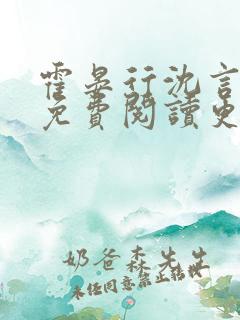 霍晏行沈言
免費閱讀
奶爸森先生
未经同意禁止转载